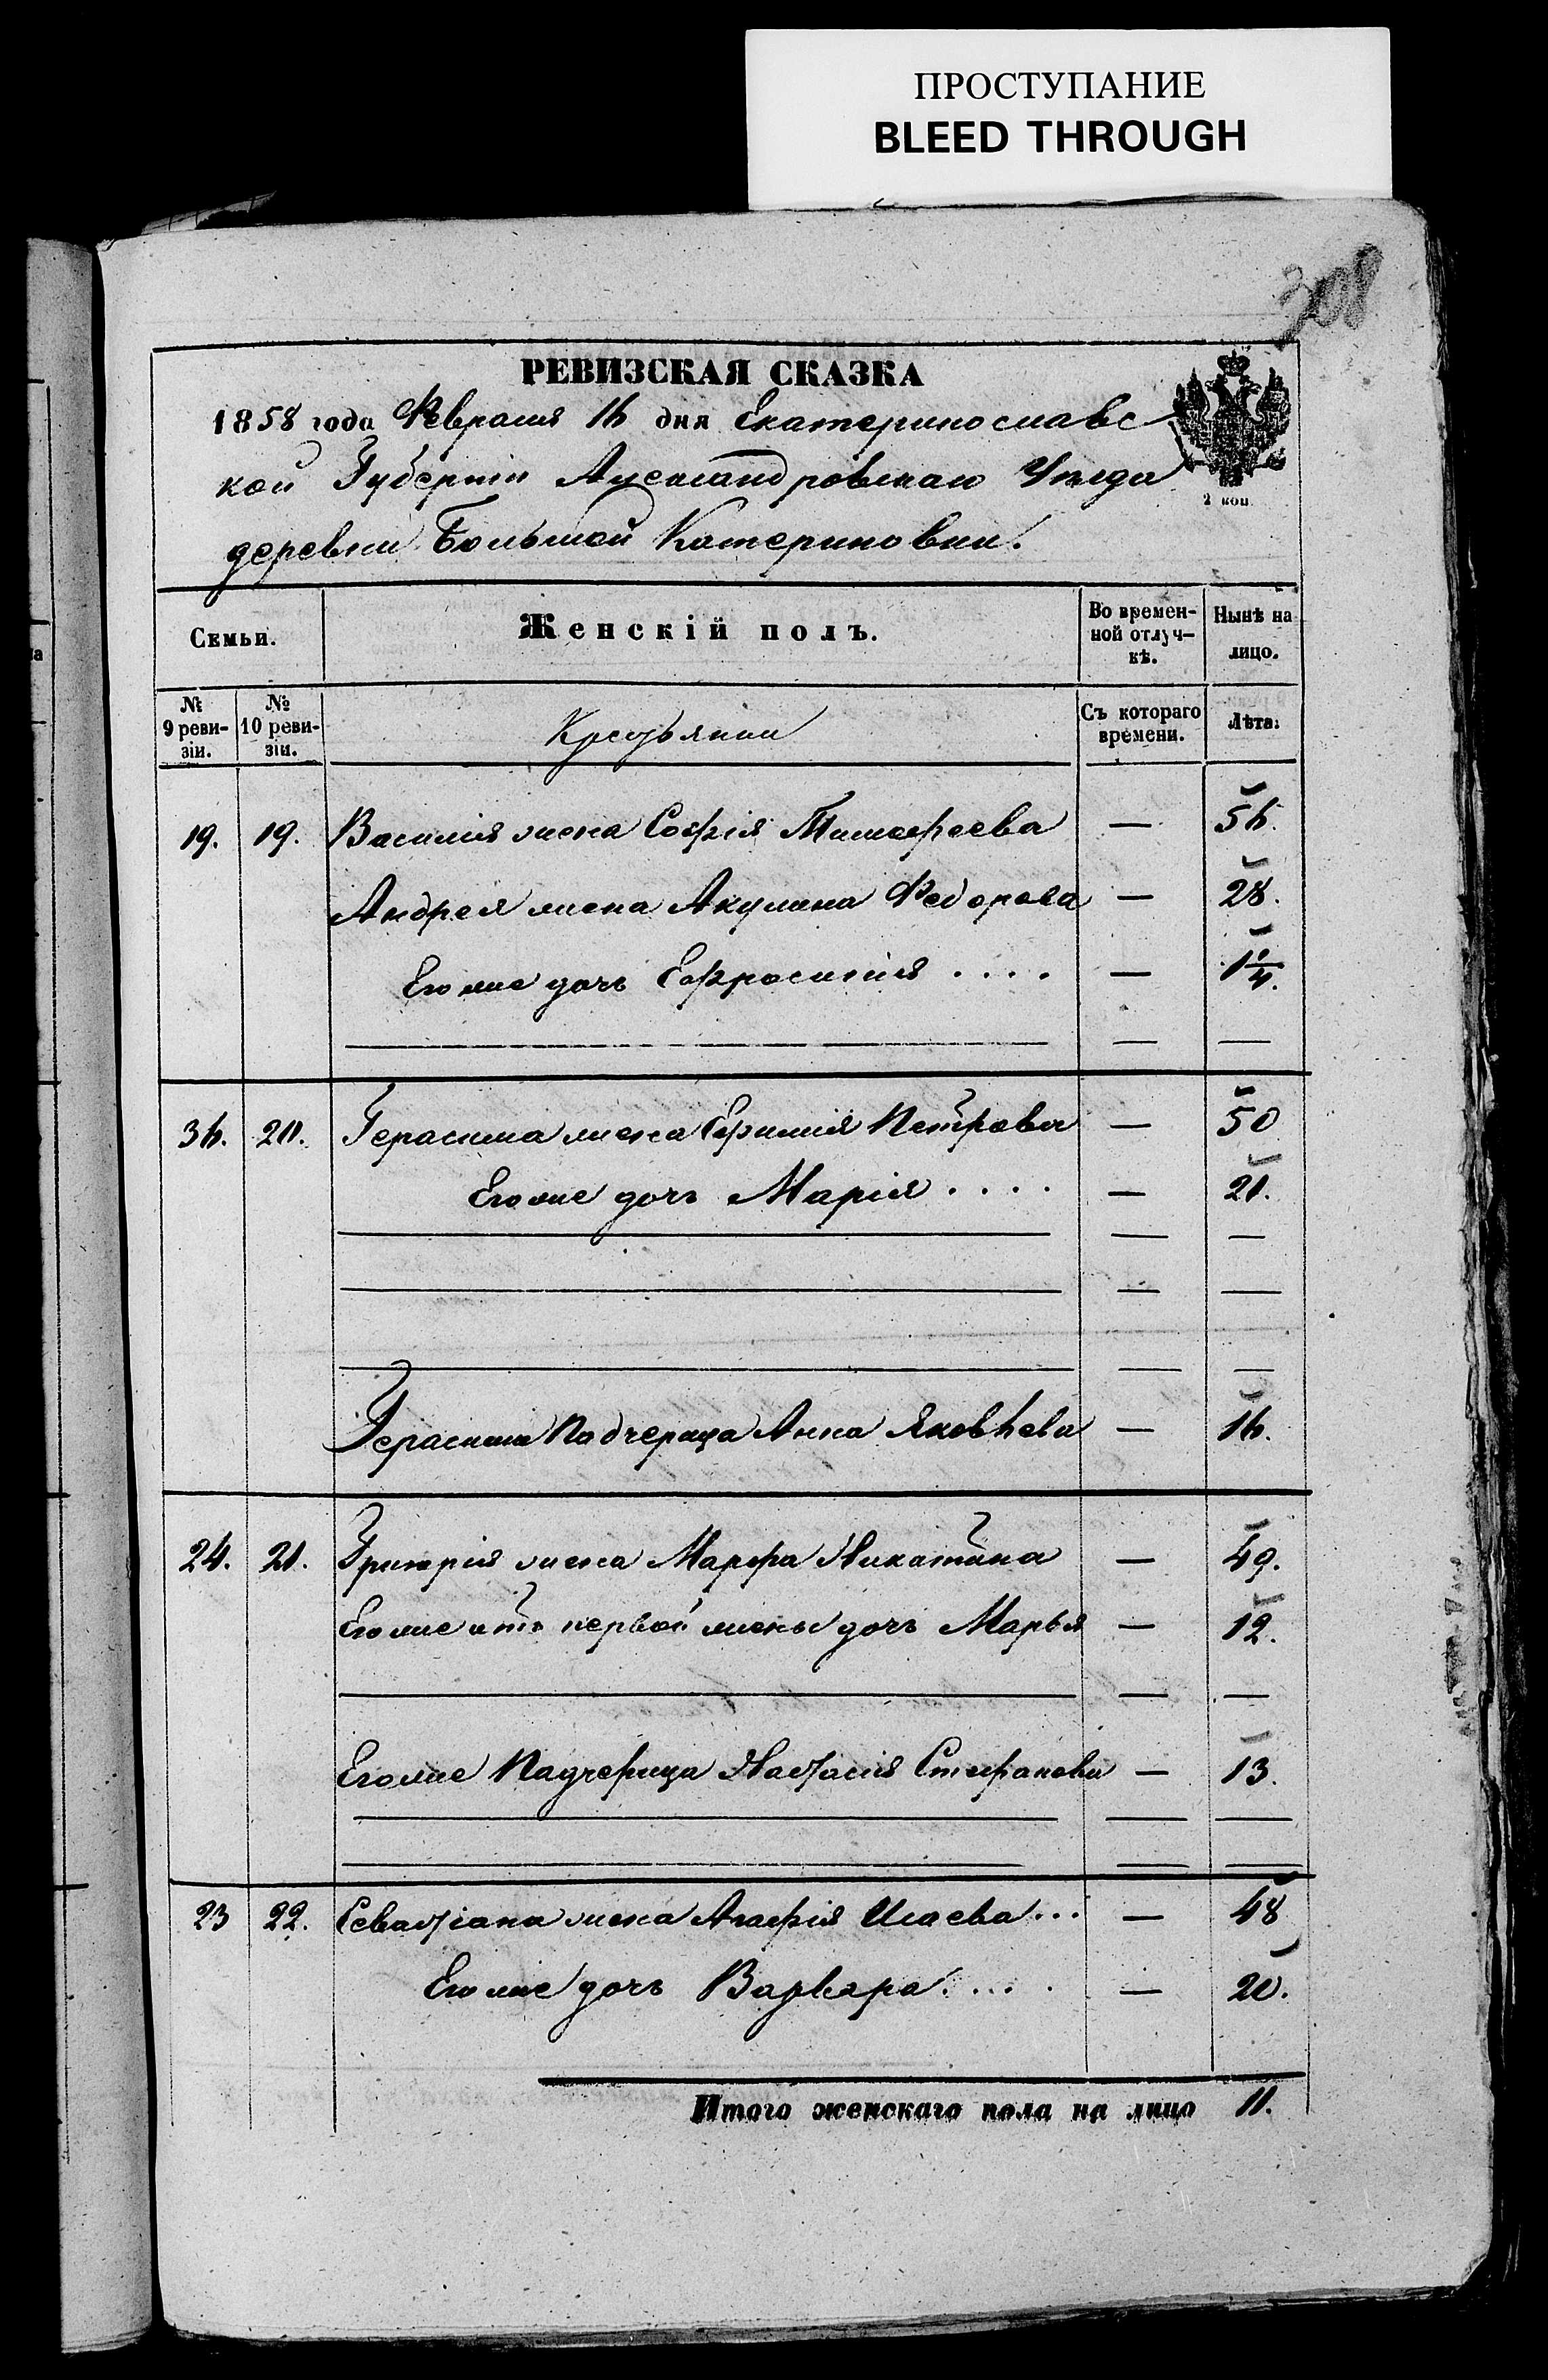 ПРОСТУПАНИЕ
BLEED THROUGH
308
РЕВИЗСКАЯ СКАЗКА
1858 года Февраля 16 дня Екатеринославс
кой Губерніи Александровскаго Уѣзда
2 коп
деревни Большой Катериновки.
Семьи.
Женскій полъ.
Во времен-
ной отлуч-
кѣ.
Нынѣ на
лицо.
№
9 реви-
зіи.
№
10 реви-
зіи.
Крестьянки
Съ котораго
времени.
Лѣта.
19. 19. Василія жена Софія Тимофеева — 56.
Андрея жена Акулина Федорова — 28.
Его же дочь Ефросинія .... — 1 1/4.
36. 20. Герасима жена Ефимія Петрова — 50
Его же дочь Марія .... — 21.
Герасима Падчерица Анна Яковлева — 16.
24. 21. Григорія жена Марфа Никитина — 49.
Его же отъ первой жены дочь Марья — 12.
Его же Падчерица Настасія Стефанова — 13.
23 22. Севастіана жена Агафія Исаева... — 48
Его же дочь Варвара.... — 20.
Итого женскаго пола на лицо 11.